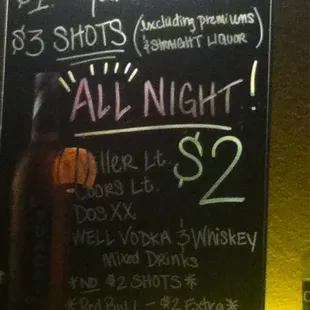 $3 SHOTS (excluding premiums
& STRAIGHT LIQUOR)
"ALL NIGHT!
Miller Lt. $2
Coors Lt.
Dos XX
WELL VODKA & Whiskey
Mixed Drinks
*NO $2 SHOTS*
*Red Bull - $2 Extra*